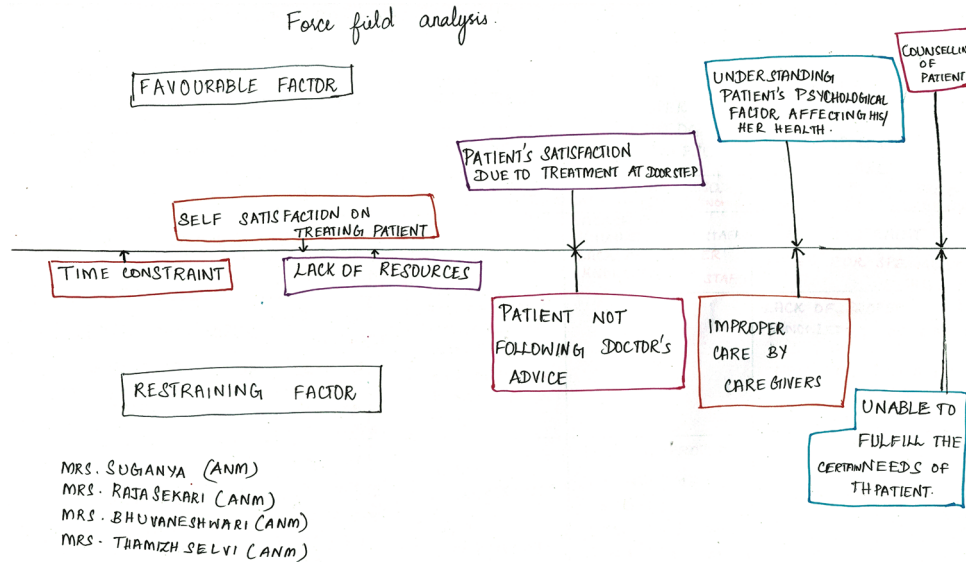 Force field analysis.
FAVOURABLE FACTOR
COUNSELLIN
OF
PATIENT
UNDERSTANDING
PATIENT'S PSYCHOLOGICAL
FACTOR AFFECTING HIS/
HER HEALTH.
PATIENT'S SATISFACTION
DUE TO TREATMENT AT DOORSTEP
SELF SATISFACTION ON
TREATING PATIENT
TIME CONSTRAINT
LACK OF RESOURCES
PATIENT NOT
FOLLOWING DOCTOR'S
ADVICE
IMPROPER
CARE BY
CARE GIVERS
UNABLE TO
FULFILL THE
CERTAIN NEEDS OF
TH PATIENT.
RESTRAINING FACTOR
MRS. SUGANYA (ANM)
MRS. RAJASEKARI (ANM)
MRS. BHUVANESHWARI (ANM)
MRS. THAMIZH SELVI (ANM)